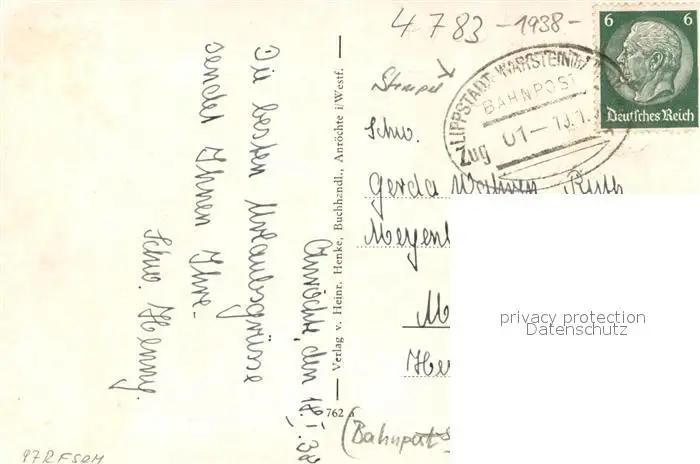 4783 - 1938 -
Stempel
LIPPSTADT-WARSTEIN
BAHNPOST
Zug
01-
6 6
Deutsches Reich
Anröchte, den 12.I.38
Die besten Urlaubsgrüsse
sendet Ihnen Ihre
Schw. Henny.
Verlag v. Heinr. Henke, Buchhandl., Anröchte i/Westf.
762
Schw.
Gerda
Ruth
privacy protection
Datenschutz
(Bahnpost
97RFSRM